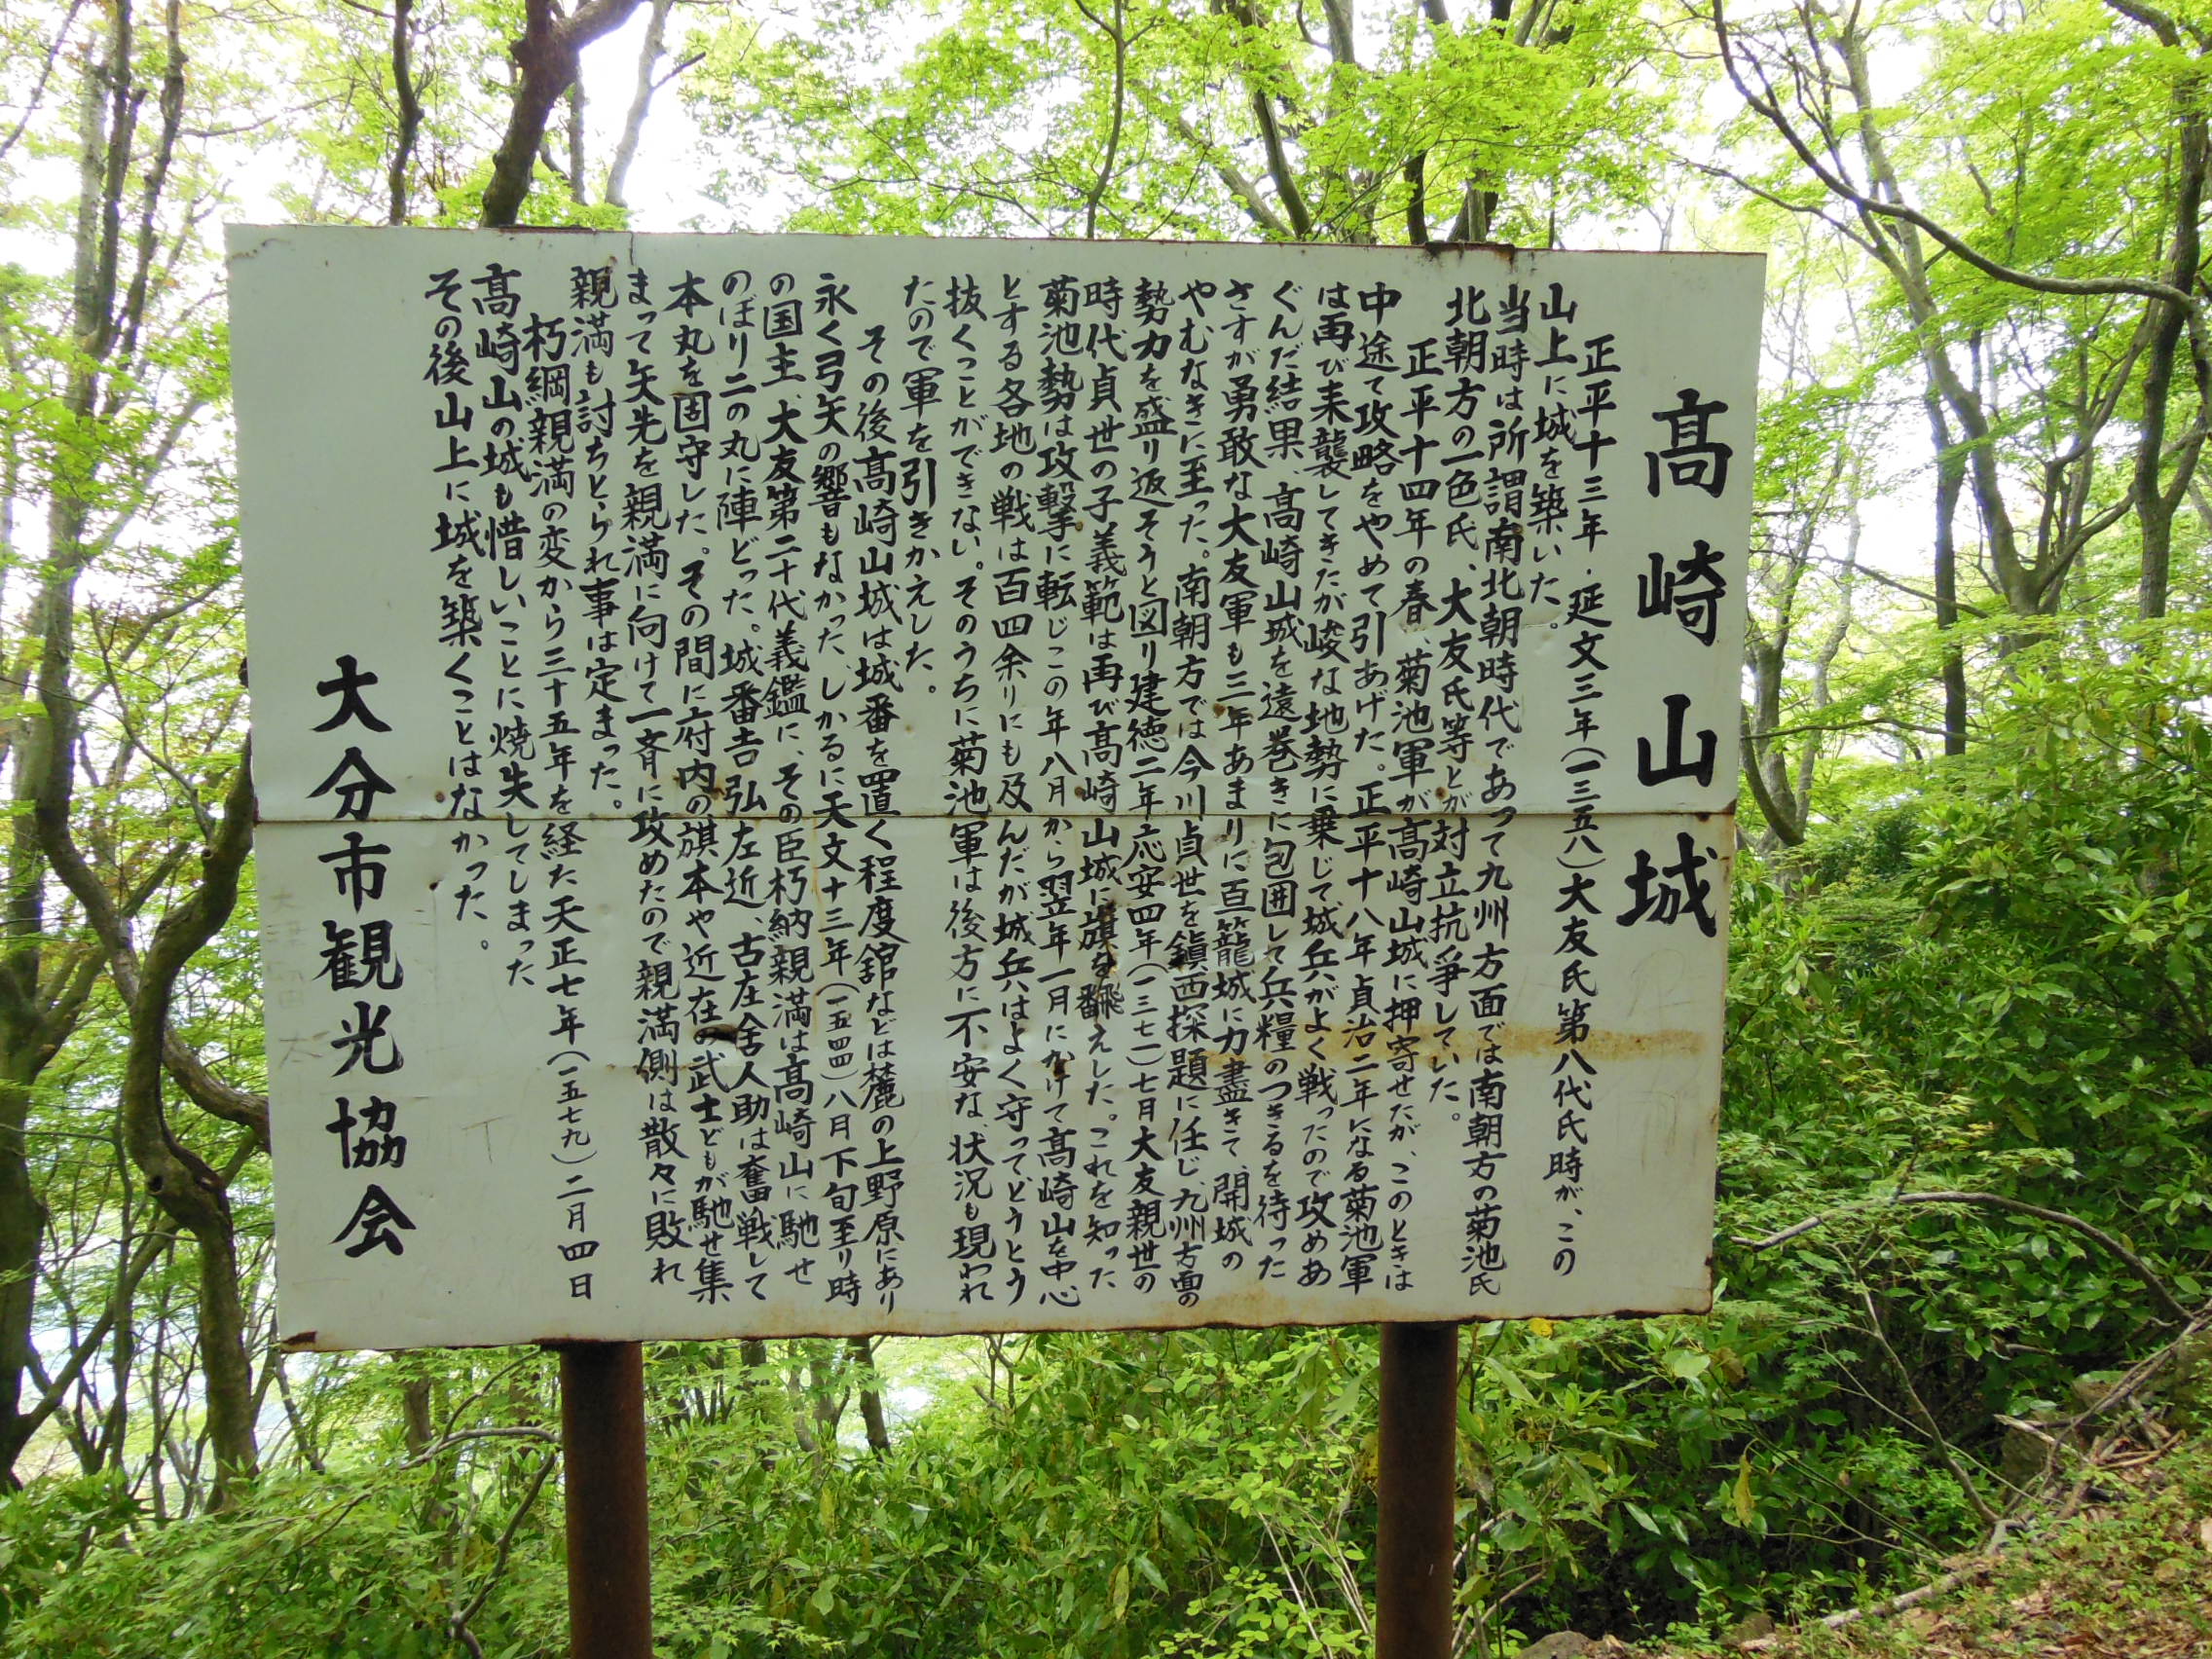 高崎山城
正平十三年・延文三年(一三五八)大友氏第八代氏時が、この
山上に城を築いた。
当時は所謂南北朝時代であって九州方面では南朝方の菊池氏
北朝方の一色氏、大友氏等とが対立抗争していた。
正平十四年の春、菊池軍が高崎山城に押寄せたが、このときは
中途て攻略をやめて引あげた。正平十八年貞治二年になる菊池軍
は再び来襲してきたが峻な地勢に乗じて城兵がよく戦ったので攻めあ
ぐんだ結果、高崎山城を遠巻きに包囲して兵糧のつきるを待った
さすが勇敢な大友軍も三年あまりに亘籠城に力盡きて、開城の
やむなきに至った。南朝方では今川貞世を鎮西探題に任じ、九州方面の
勢力を盛り返そうと図り建徳二年応安四年(一三七一)七月大友親世の
時代貞世の子義範は再び高崎山城に旗を飜えした。これを知った
菊池勢は攻撃に転じこの年八月から翌年一月にかけて高崎山を中心
とする各地の戦は百四余りにも及んだが城兵はよく守ってどうとう
抜くっことができない。そのうちに菊池軍は後方に不安な、状況も現われ
たので軍を引きかえした。
その後高崎山城は城番を置く程度舘などは麓の上野原にあり
永く弓矢の響もなかった、しかるに天文十三年(一五四四)八月下旬至り時
の国主、大友第二十代義鑑に、その臣朽納親満は高崎山に馳せ
のぼり二の丸に陣どった。城番吉弘左近、古庄舎人助は奮戦して
本丸を固守した。その間に府内の旗本や近在の武士どもが馳せ集
まって矢先を親満に向けて一斉に攻めたので親満側は散々に敗れ
親満も討ちとられ事は定まった。
朽綱親満の変から三十五年を経た天正七年(一五七九)二月四日
高崎山の城も惜しいことに焼失してしまった
その後山上に城を築くっとはなかった。
大分市観光協会